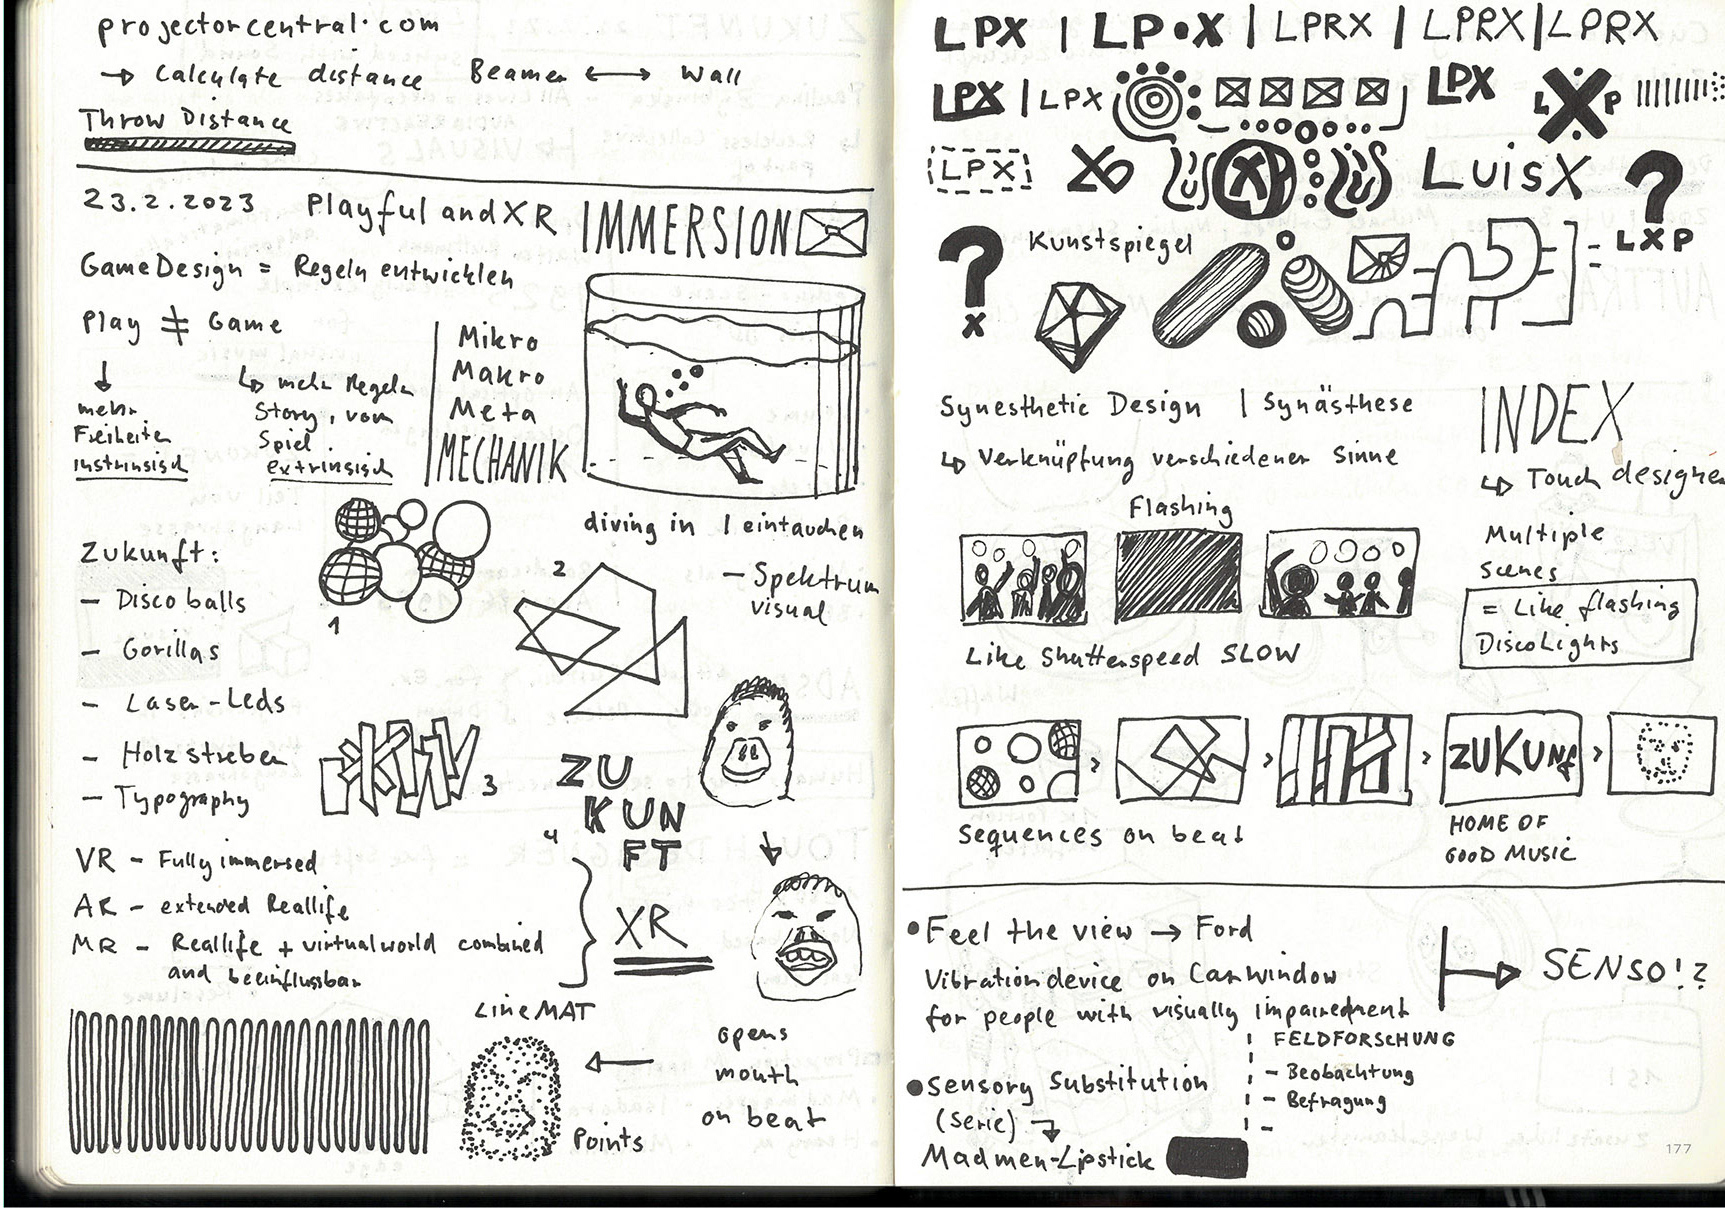 projectorcentral.com
→ Calculate distance Beamer ↔ Wall
Throw Distance
23.2.2023 Playful and XR
IMMERSION
GameDesign = Regeln entwicklen
Play ≠ Game
↓
mehr
Freiheiten
instrinsisch
↳ mehr Regeln
Story, vom
Spiel
extrinsisch
Mikro
Makro
Meta
MECHANIK
diving in | eintauchen
- Spektrum
visual
Zukunft:
- Disco balls
- Gorillas
- Laser-Leds
- Holzstreben
- Typography
1
2
3
4
ZU
KUN
FT
VR - Fully immersed
AR - extended Reallife
MR - Reallife + virtual world combined
and beeinflussbar
XR
LineMAT
Points
opens
mouth
on beat
LPX | LP•X | LPRX | LPRX | LPRX
LPX | LPX
LPX
LXP
LPX
LuisX
?
LXP
?
x
Kunstspiegel
Synesthetic Design | Synästhese
↳ Verknüpfung verschiedener Sinne
INDEX
↳ Touch designer
Multiple
scenes
= Like flashing
DiscoLights
Flashing
Like Shutterspeed SLOW
ZUKUNf
Sequences on beat
HOME OF
GOOD MUSIC
• Feel the view → Ford
Vibrationdevice on Carwindow
for people with visually impairedment
→ SENSO!?
• Sensory Substitution
(Serie)
Madmen-Lipstick
FELDFORSCHUNG
- Beobachtung
- Befragung
-
177